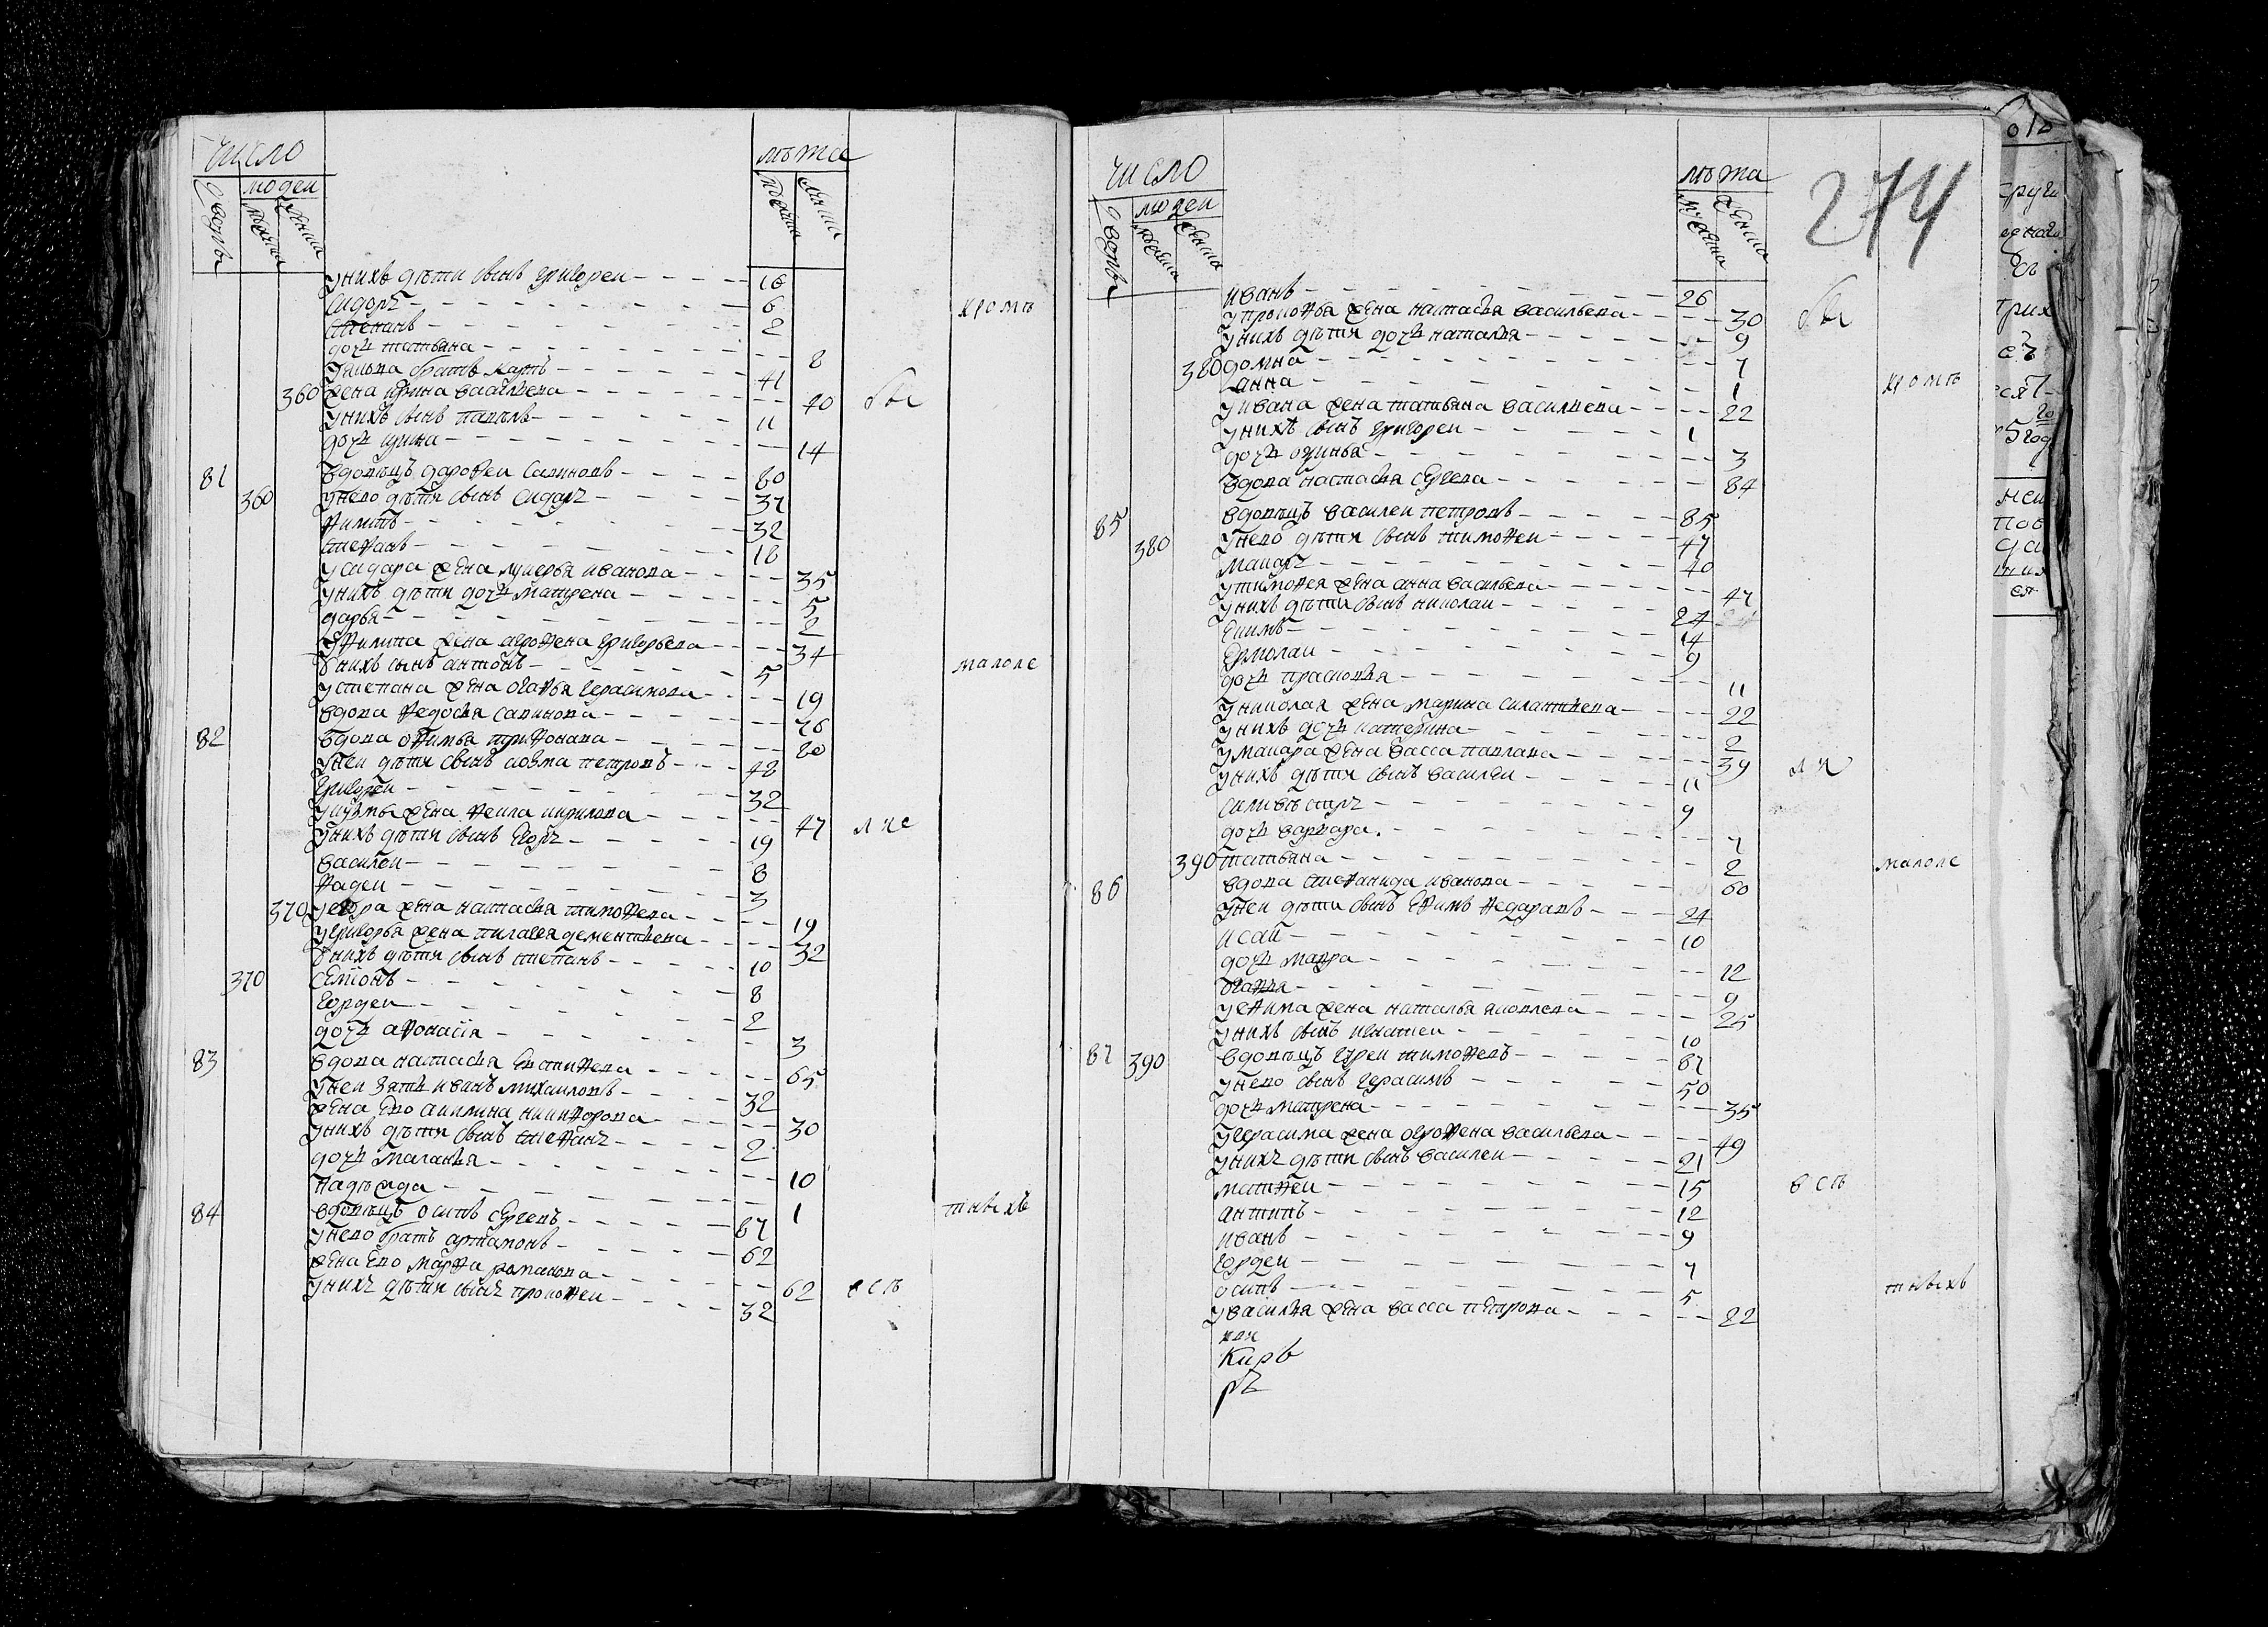 число
людеи
дворовъ
мужеска
женска
лѣта
мужеска
женска
у нихъ дѣти сынъ григореи 16
сидоръ 6 кромѣ
степанъ 2
дочь татьяна 8
братъ карпъ 41
360 жена ирина васильева 40 бы
у нихъ сынъ павелъ 11
дочь ирина 14
81 вдовецъ дарофеи савиновъ 80
360 у нево дѣти сынъ сидаръ 37
филипъ 32
стефанъ 18
у сидара жена лукерья иванова 35
у нихъ дѣти дочь матрена 5
дарья 2
у филипа жена агрофена григорьева 34
у нихъ сынъ антонъ 5 малоле
у степана жена агафья герасимова 19
вдова федосья савинова 76
82 вдова офимья трифонава 80
у неи дѣти сынъ козма петровъ 48
григореи 32
у кузмы жена фекла кирилова 47 лне
у нихъ дѣти сынъ егоръ 19
василеи 8
фадеи 3
370 у егора жена настасья тимофева 19
у григорья жена пилагея дементьева 32
у нихъ дѣти сынъ степанъ 10
370 семионъ 8
гордеи 2
дочь афонасія 3
83 вдова настасья евстифева 65
у неи зять иванъ михаиловъ 32
жена ево акилина никифорова 30
у нихъ дѣти сынъ стефанъ 2
дочь маланья 10
надѣжда 1
84 вдовецъ осипъ сергевъ 87 тывхъ
у нево братъ артамонъ 62
жена ево марфа романова 62 всѣ
у нихъ дѣти сынъ прокофеи 32
274
число
людеи
дворовъ
мужеска
женска
лѣта
мужеска
женска
иванъ 26
у прокофья жена настасья васильева 30 бы
у нихъ дѣти дочь наталья 9
380 домна 7
анна 1 кромѣ
у ивана жена татьяна васильева 22
у нихъ сынъ григореи 1
дочь офинья 3
вдова настасья сергева 84
85 вдовецъ василеи петровъ 85
380 у нево дѣти сынъ тимофеи 47
макаръ 40
у тимофея жена анна васильева 47
у нихъ дѣти сынъ николаи 24
екимъ 14
ермолаи 9
дочь прасковья 11
у николая жена марина силантьева 22
у нихъ дочь катерина 2
у макара жена васса павлава 39 лн
у нихъ дѣти сынъ василеи 11
силивѣстръ 9
дочь варвара 7
390 татьяна 2 малоле
86 вдова стефанида иванова 60
у неи дѣти сынъ ефимъ федаравъ 24
исаи 10
дочь мавра 12
агафья 9
у ефима жена наталья яковлева 25
у нихъ сынъ игнатеи 10
87 390 вдовецъ гуреи тимофевъ 87
у нево сынъ герасимъ 50
дочь матрена 35
у герасима жена огрофена васильева 49
у нихъ дѣти сынъ василеи 21
матфеи 15 всѣ
антипъ 12
иванъ 9
гордеи 7
осипъ 5 тывхъ
у василья жена васса петрова 22
Киръ
ръ